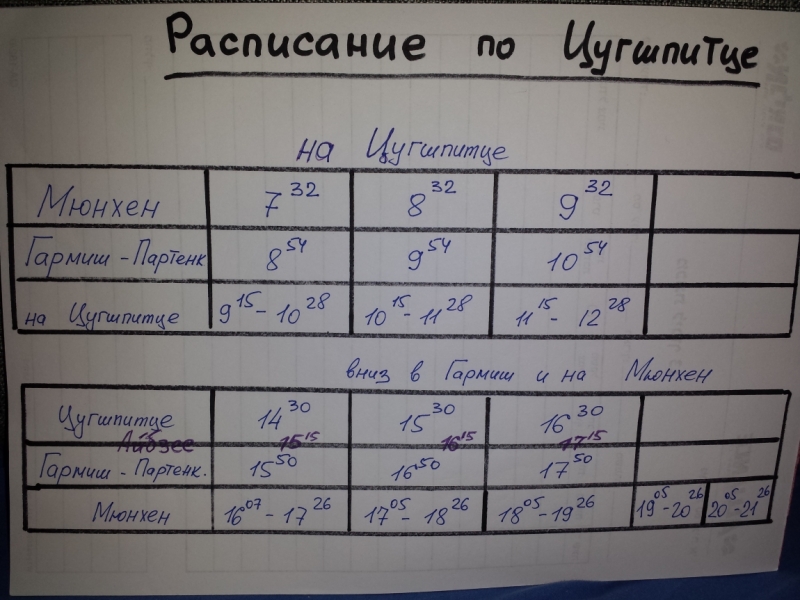 Расписание по Цугшпитце
на Цугшпитце
Мюнхен 7 32 8 32 9 32
Гармиш - Партенк 8 54 9 54 10 54
на Цугшпитце 9 15 - 10 28 10 15 - 11 28 11 15 - 12 28
вниз в Гармиш и на Мюнхен
Цугшпитце 14 30 15 30 16 30
Айбзее 15 15 16 15 17 15
Гармиш - Партенк. 15 50 16 50 17 50
Мюнхен 16 07 - 17 26 17 05 - 18 26 18 05 - 19 26 19 05 - 20 26 20 05 - 21 26